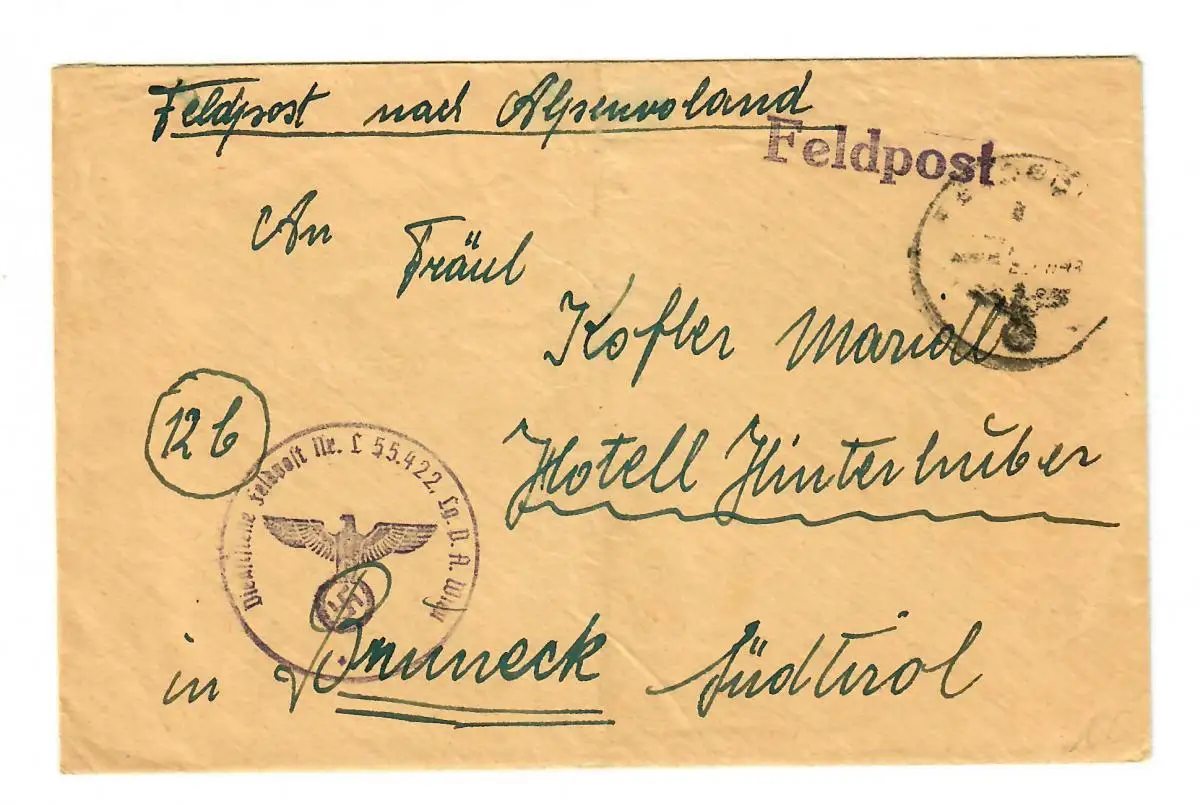 Feldpost nach Alpenvoland
Feldpost
An Fräul
Kofler Mariedl
12b
Hotell Hinterhuber
Dienststelle Feldpost Nr. L 55.422. Lg. P. A.
in Bruneck Südtirol